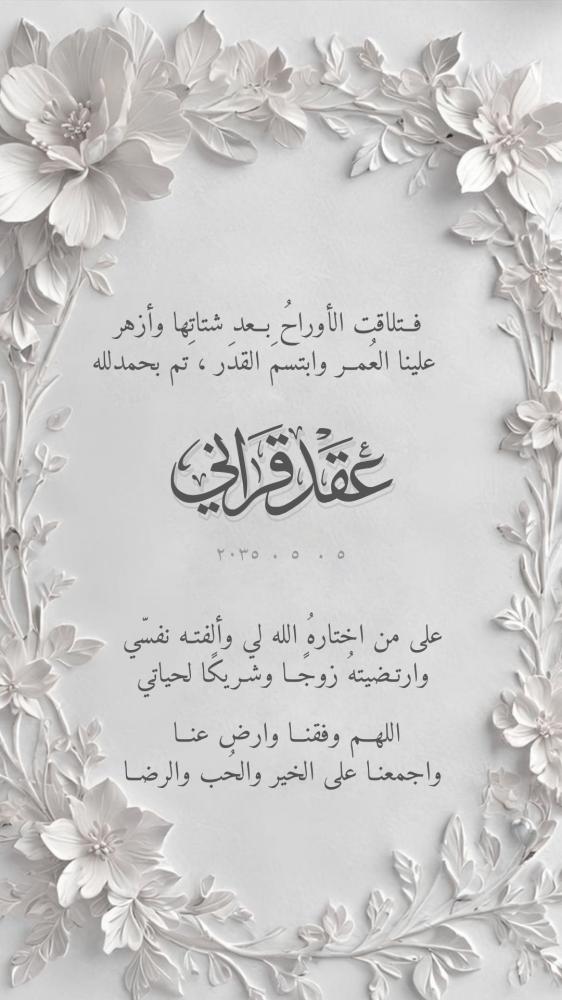 فـتلاقت الأوراحُ بِـعد شتاتِها وأزهر
علينا العُمـر وابتسمَ القدَر ، تم بحمدلله
عقد قراني
٥ . ٥ . ٢٠٣٥
على من اختارهُ الله لي وألفتـه نفسّي
وارتـضيتهُ زوجًـا وشـريكًا لحياتي
اللهـم وفقنـا وارض عنـا
واجمعنـا على الخير والحُب والرضـا